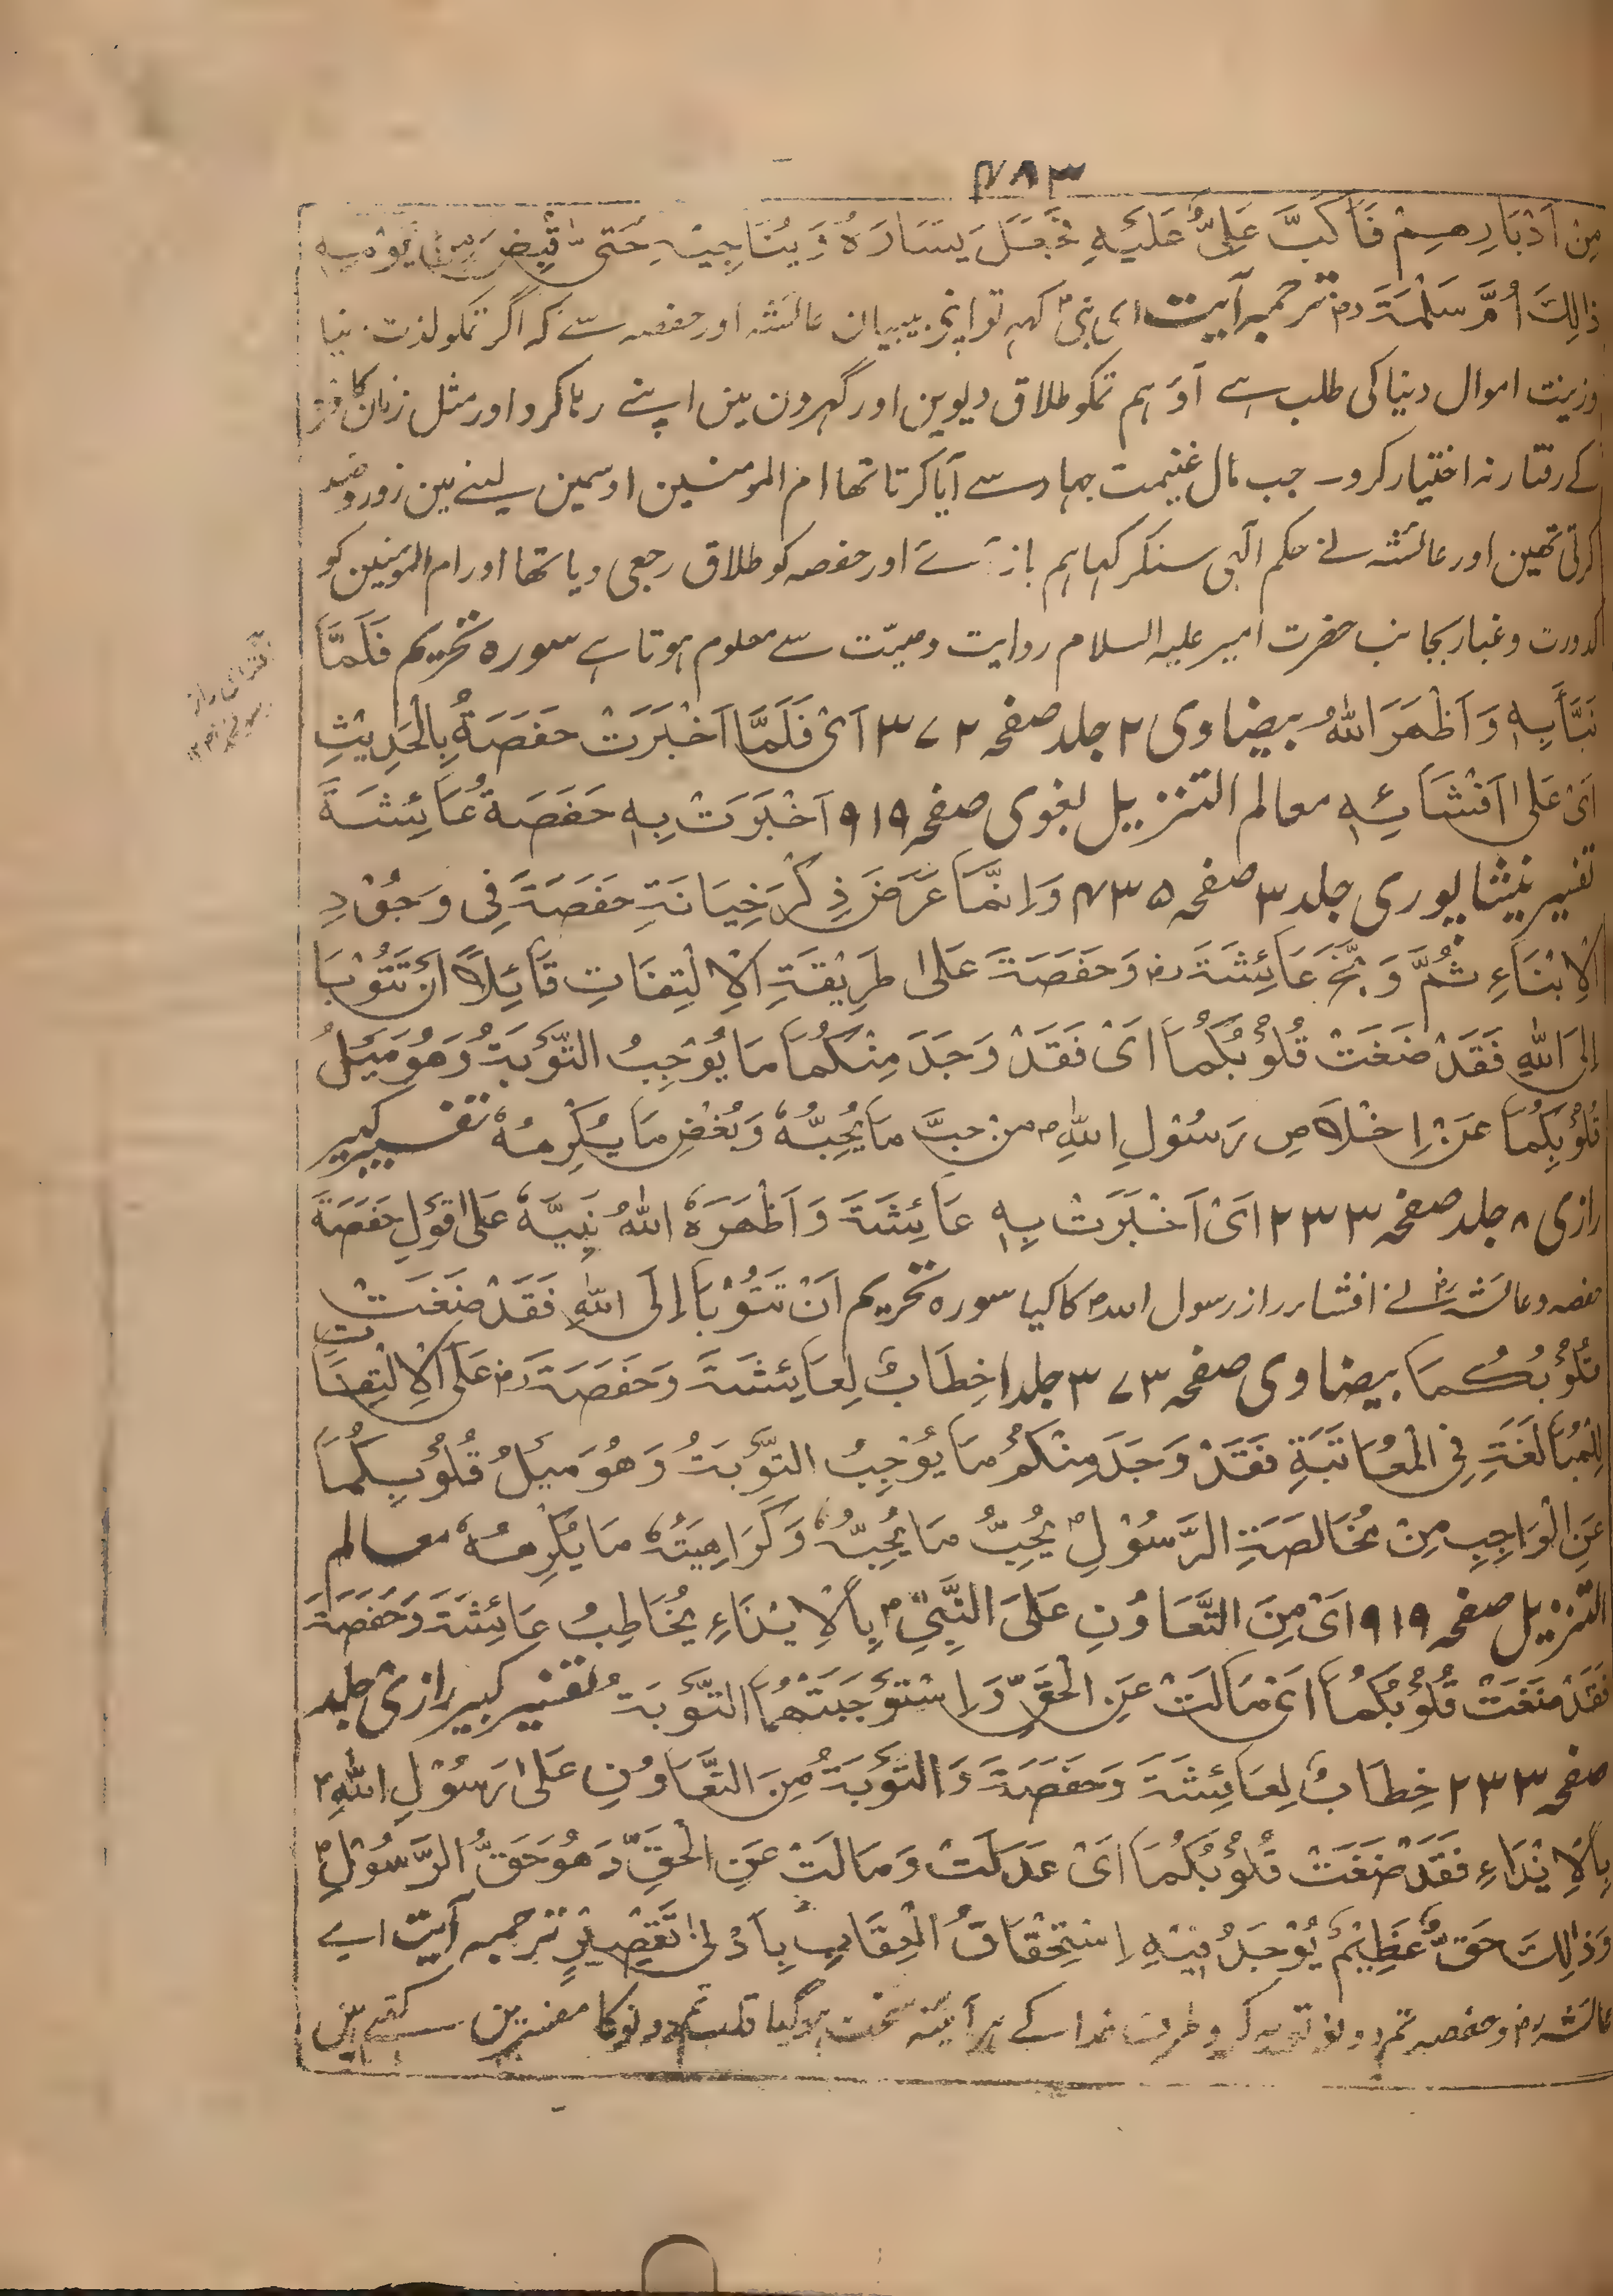 ۴۸۳
مِنْ اَدْبَارِهِمْ فَاَكَبَّ عَلِيٌّ عَلَيْهِ فَجَعَلَ يَسَارَهُ وَيُنَاجِيْهِ حَتّٰى قُبِضَ مِنْ يَوْمِهٖ
ذٰلِكَ اُمَّ سَلْمَةَ رض ترجمہ آیت ای نبیؐ کہہ تو اپنی بیبیان عائشہ اور حفصہ سے کہ اگر تمکو لذت دنیا
وزینت اموال دنیا کی طلب ہے آؤ ہم تمکو طلاق دیوین اور گہرون مین اپنے رہا کرو اور مثل زنان
کے رفتار نہ اختیار کرو۔ جب مال غنیمت جہاد سے آیا کرتا تھا ام المومنین اوسمین لینے مین زور و ضد
کرتی تھین اور عائشہ نے حکم الٰہی سنکر کہا ہم باز آئے اور حفصہ کو طلاق رجعی دیا تھا اور ام المومنین کو
کدورت و غبار بجانب حضرت امیر علیہ السلام روایت وصیّت سے معلوم ہوتا ہے سورہ تحریم فَلَمَّا
نَبَّأَ بِهٖ وَ اَظْهَرَ اللّٰهُ بیضاوی ۲ جلد صفحہ ۳۷۲ اَىْ فَلَمَّا اَخْبَرَتْ حَفَصَةُ بِالْحَدِيْثِ
اَىْ عَلٰى اَفْشَائِهٖ معالم التنزیل بغوی صفحہ ۹۱۹ اَخْبَرَتْ بِهٖ حَفَصَةُ عَائِشَةَ
تفسیر نیشاپوری جلد ۳ صفحہ ۴۳۵ وَاِنَّمَا عَرَّضَ ذِكْرَ خِيَانَةِ حَفَصَةَ فِى وَجُوْدِ
الْاِبْنَاءِ ثُمَّ وَبَّخَ عَائِشَةَ رض وَحَفَصَةَ عَلٰى طَرِيْقَةِ الْاِلْتِفَاتِ قَائِلًا اَنْ تَتُوْبَا
اِلَى اللّٰهِ فَقَدْ صَغَتْ قُلُوْبُكُمَا اَىْ فَقَدْ وَجَدَ مِنْكُمَا مَا يُوْجِبُ التَّوْبَةُ وَهُوَ مَيْلُ
قُلُوْبِكُمَا عَنْ اِخْلَاصِ رَسُوْلِ اللّٰهِ ص مِنْ حَبِّ مَا يُحِبُّهٗ وَبُغْضِ مَا يُكْرِهُهٗ تفسیر کبیر
رازی ۸ جلد صفحہ ۲۳۳ اَىْ اَخْبَرَتْ بِهٖ عَائِشَةَ وَ اَظْهَرَهُ اللّٰهُ نَبِيَّهٗ عَلٰى قَوْلِ حَفَصَةَ
حفصہ و عائشہ رض نے افشار راز رسول اللہ ص کا کیا سورہ تحریم اَنْ تَتُوْبَا اِلَى اللّٰهِ فَقَدْ صَغَتْ
قُلُوْبُكُمَا بیضاوی صفحہ ۳۷۳ جلد اخِطَابٌ لِعَائِشَةَ وَحَفَصَةَ رض عَلَى الْاِلْتِفَاتِ
لِلْمُبَالَغَةِ فِى الْمُعَاتَبَةِ فَقَدْ وَجَدَ مِنْكُمْ مَا يُوْجِبُ التَّوْبَةُ وَهُوَ مَيْلُ قُلُوْبِكُمَا
عَنِ الْوَاجِبِ مِنْ مُخَالَصَةِ الرَّسُوْلِ ؐ يُحِبُّ مَا يُحِبُّهٗ وَكَرَاهِيَتُهٗ مَا يُكْرِهُهٗ معالم
التنزیل صفحہ ۹۱۹ اَىْ مِنَ التَّعَاوُنِ عَلَى النَّبِيِّ ؐ بِالْاِيْذَاءِ يُخَاطِبُ عَائِشَةَ وَحَفَصَةَ
فَقَدْ صَغَتْ قُلُوْبُكُمَا اَىْ مَالَتْ عَنِ الْحَقِّ وَاِسْتَوْجَبَتْهُمَا التَّوْبَةُ تفسیر کبیر رازی جلد
صفحہ ۲۳۳ خِطَابٌ لِعَائِشَةَ وَحَفَصَةَ وَالتَّوْبَةُ مِنَ التَّعَاوُنِ عَلٰى رَسُوْلِ اللّٰهِ ؐ
بِالْاِيْذَاءِ فَقَدْ صَغَتْ قُلُوْبُكُمَا اَىْ عَدَلَتْ وَمَالَتْ عَنِ الْحَقِّ وَهُوَ حَقُّ الرَّسُوْلِ ؐ
وَذٰلِكَ حَقٌّ عَظِيْمٌ يُوْجَدُ فِيْهِ اِسْتِحْقَاقُ الْعِقَابِ بِاَدْنٰى تَقْصِيْرٍ ترجمہ آیت اے
عائشہ رض و حفصہ تم دونو توبہ کرو طرف خدا کے ہرآئینہ سخت ہوگیا قلب تم دونو کا مفسرین کہتے ہین